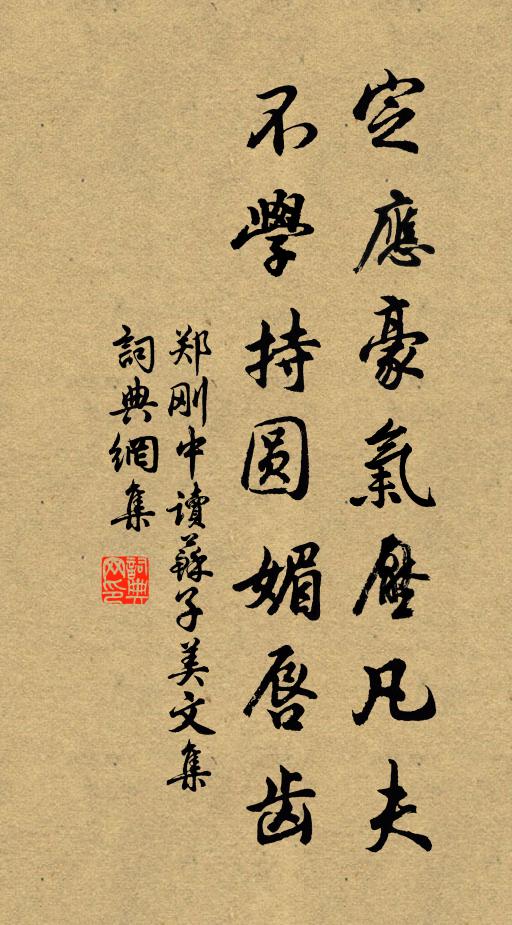 定應豪氣壓凡夫
不學持圆媚唇齿
郑刚中讀蘇子美文集
詞典網集
詞典网印